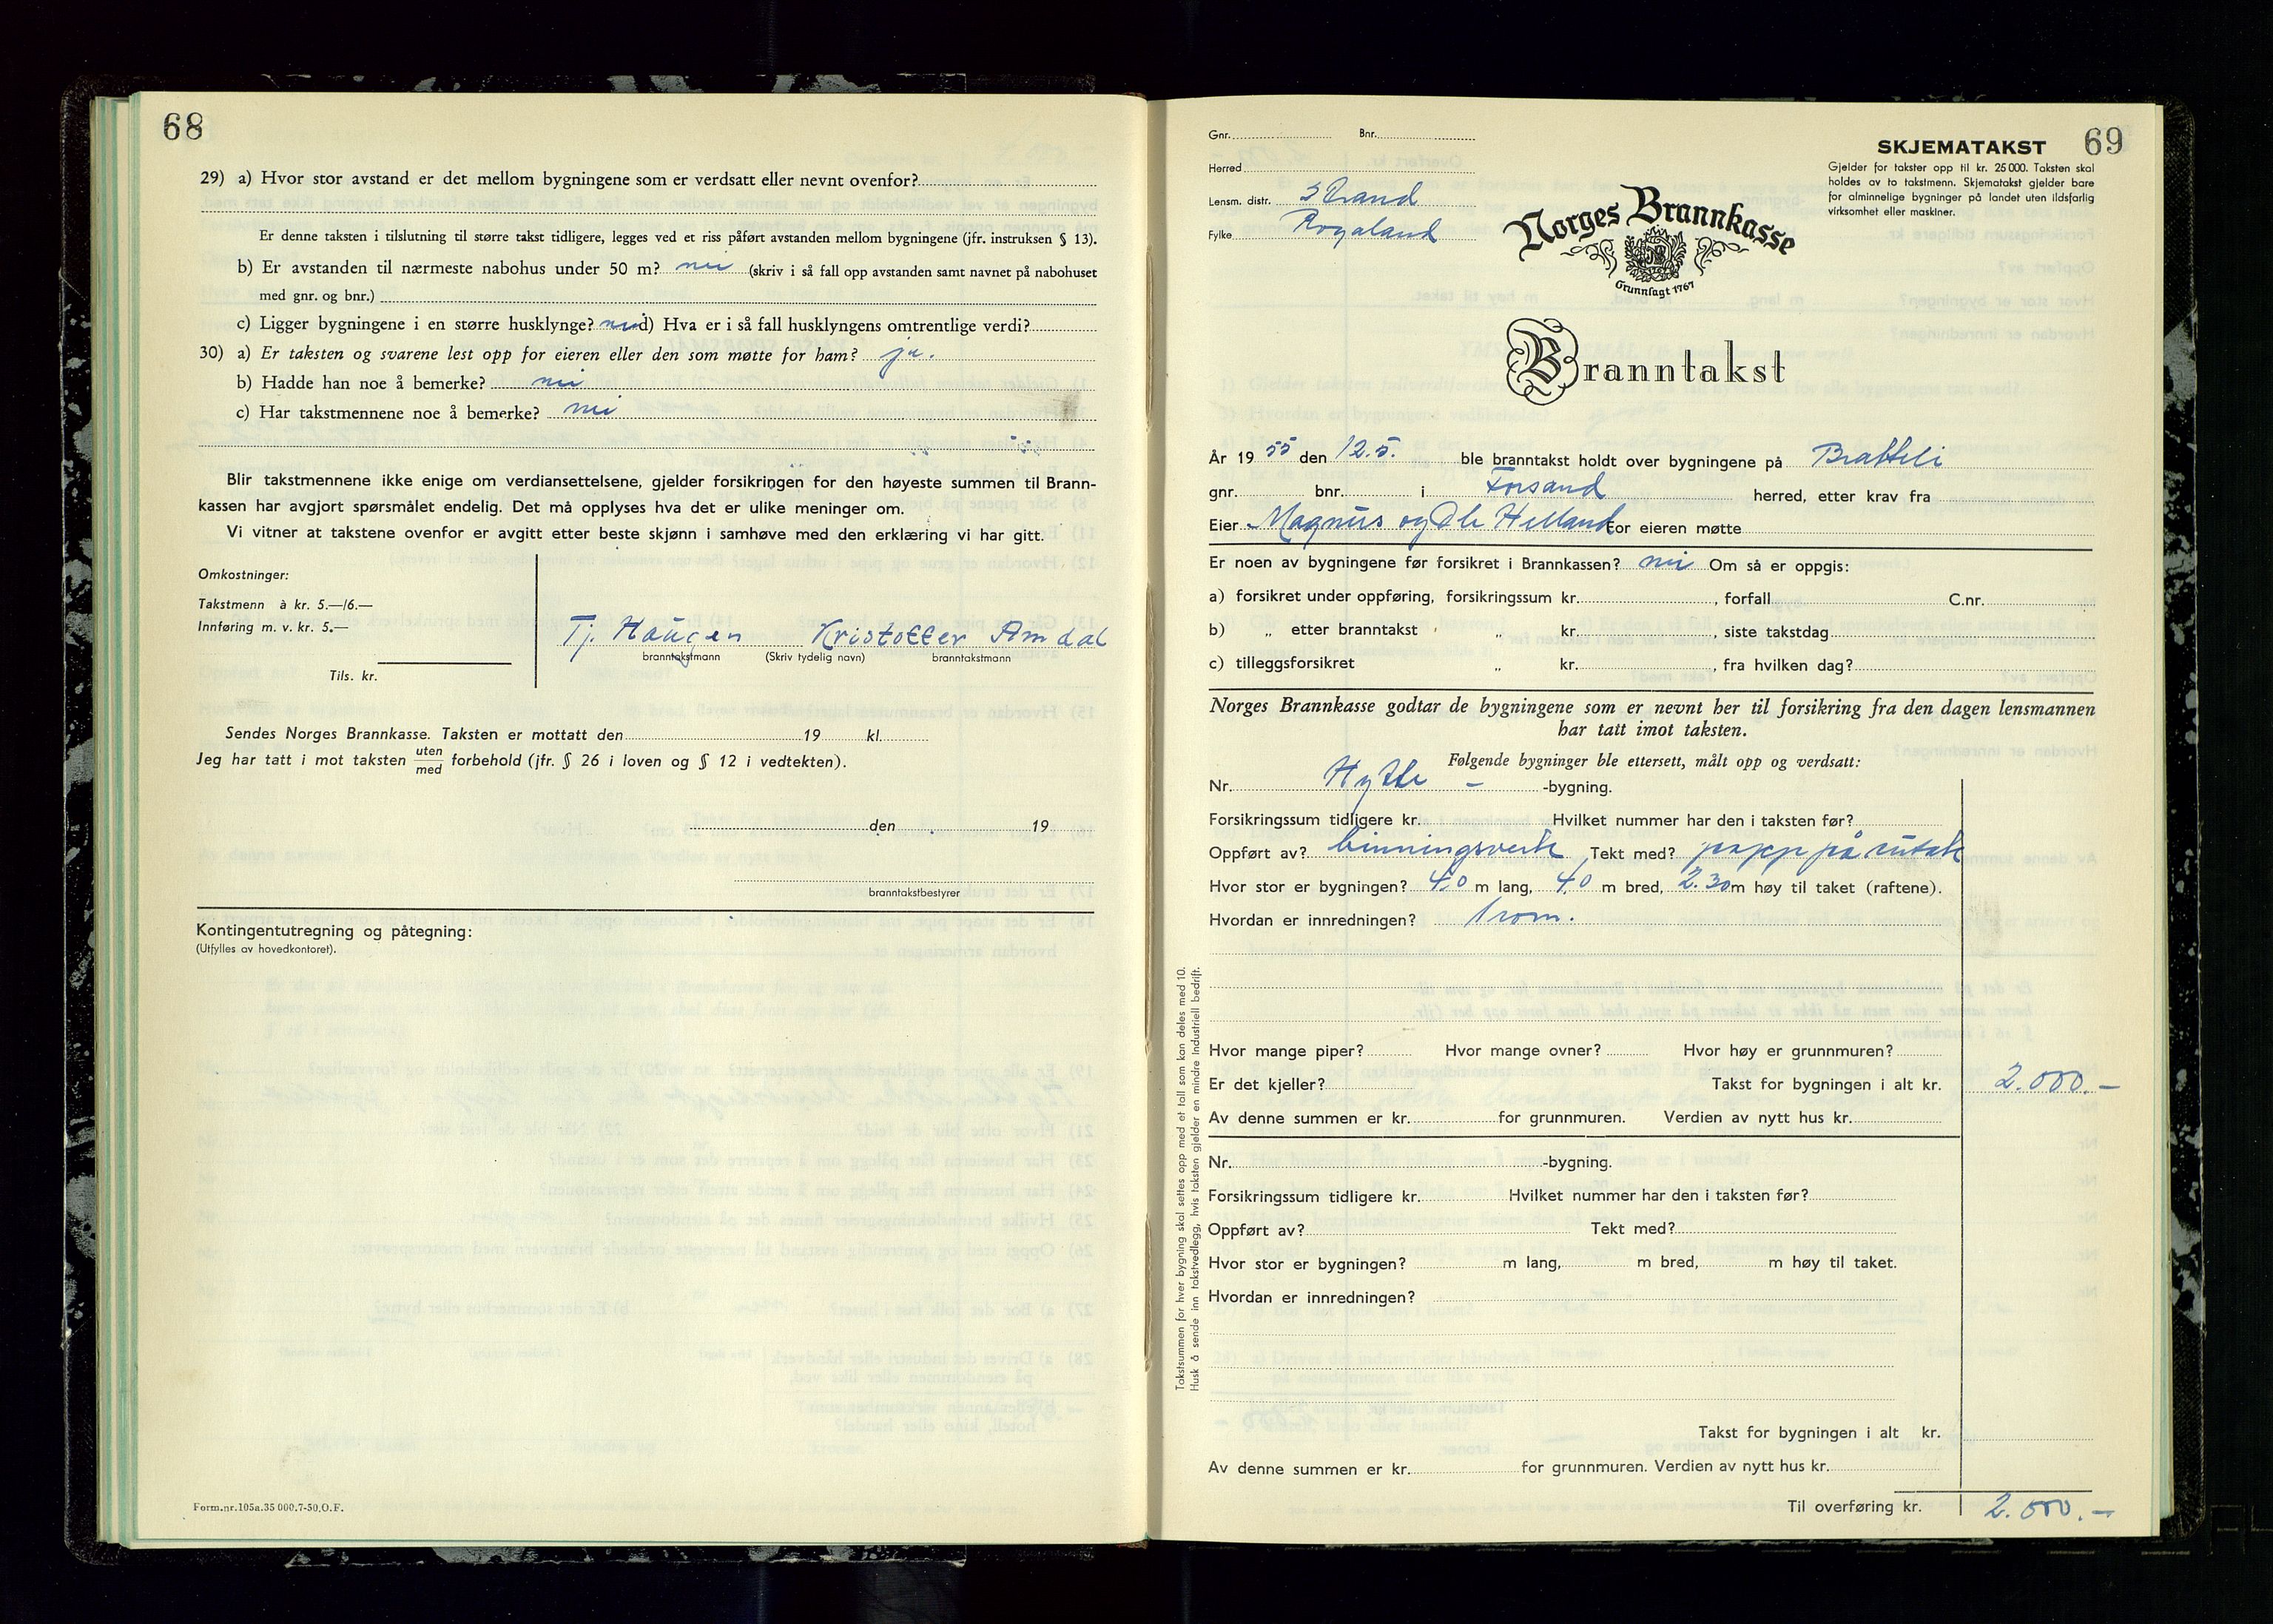 68
29) a) Hvor stor avstand er det mellom bygningene som er verdsatt eller nevnt ovenfor?
Er denne taksten i tilslutning til større takst tidligere, legges ved et riss påført avstanden mellom bygningene (jfr. instruksen § 13).
b) Er avstanden til nærmeste nabohus under 50 m? nei (skriv i så fall opp avstanden samt navnet på nabohuset
med gnr. og bnr.)
c) Ligger bygningene i en større husklynge? nei d) Hva er i så fall husklyngens omtrentlige verdi?
30) a) Er taksten og svarene lest opp for eieren eller den som møtte for ham? ja.
b) Hadde han noe å bemerke? nei
c) Har takstmennene noe å bemerke? nei
Blir takstmennene ikke enige om verdiansettelsene, gjelder forsikringen for den høyeste summen til Brann-
kassen har avgjort spørsmålet endelig. Det må opplyses hva det er ulike meninger om.
Vi vitner at takstene ovenfor er avgitt etter beste skjønn i samhøve med den erklæring vi har gitt.
Omkostninger:
Takstmenn à kr. 5.—/6.—
Innføring m. v. kr. 5.—
Tj. Haugen Kristoffer Amdal
branntakstmann (Skriv tydelig navn) branntakstmann
Tils. kr.
Sendes Norges Brannkasse. Taksten er mottatt den 19 kl.
Jeg har tatt i mot taksten uten/med forbehold (jfr. § 26 i loven og § 12 i vedtekten).
den 19
branntakstbestyrer
Kontingentutregning og påtegning:
(Utfylles av hovedkontoret).
Form.nr.105a.35 000.7-50.O.F.
Gnr. Bnr.
SKJEMATAKST 69
Herred
Lensm. distr. Strand
Fylke Rogaland
Gjelder for takster opp til kr. 25 000. Taksten skal
holdes av to takstmenn. Skjematakst gjelder bare
for alminnelige bygninger på landet uten ildsfarlig
virksomhet eller maskiner.
Norges Brannkasse
Grunnlagt 1767
Branntakst
År 19 55 den 12.5. ble branntakst holdt over bygningene på Bratteli
gnr. bnr. i Forsand herred, etter krav fra
Eier Magnus og Ole Helland For eieren møtte
Er noen av bygningene før forsikret i Brannkassen? nei Om så er oppgis:
a) forsikret under oppføring, forsikringssum kr. , forfall C.nr.
b) „ etter branntakst „ kr. , siste takstdag
c) tilleggsforsikret „ kr. , fra hvilken dag?
Norges Brannkasse godtar de bygningene som er nevnt her til forsikring fra den dagen lensmannen
har tatt imot taksten.
Følgende bygninger ble ettersett, målt opp og verdsatt:
Nr. Hytte - -bygning.
Forsikringssum tidligere kr. Hvilket nummer har den i taksten før?
Oppført av? binningsverk Tekt med? papp på sutak
Hvor stor er bygningen? 4.0 m lang, 4.0 m bred, 2.30 m høy til taket (raftene).
Hvordan er innredningen? 1 rom.
Hvor mange piper? Hvor mange ovner? Hvor høy er grunnmuren?
Er det kjeller? Takst for bygningen i alt kr. 2.000.-
Av denne summen er kr. for grunnmuren. Verdien av nytt hus kr.
Nr. -bygning.
Forsikringssum tidligere kr. Hvilket nummer har den i taksten før?
Oppført av? Tekt med?
Hvor stor er bygningen? m lang, m bred, m høy til taket.
Hvordan er innredningen?
Takst for bygningen i alt kr.
Av denne summen er kr. for grunnmuren. Verdien av nytt hus kr.
Til overføring kr. 2.000.-
Takstsummen for hver bygning skal settes opp med et tall som kan deles med 10.
Husk å sende inn takstvedlegg, hvis taksten gjelder en mindre industriell bedrift.